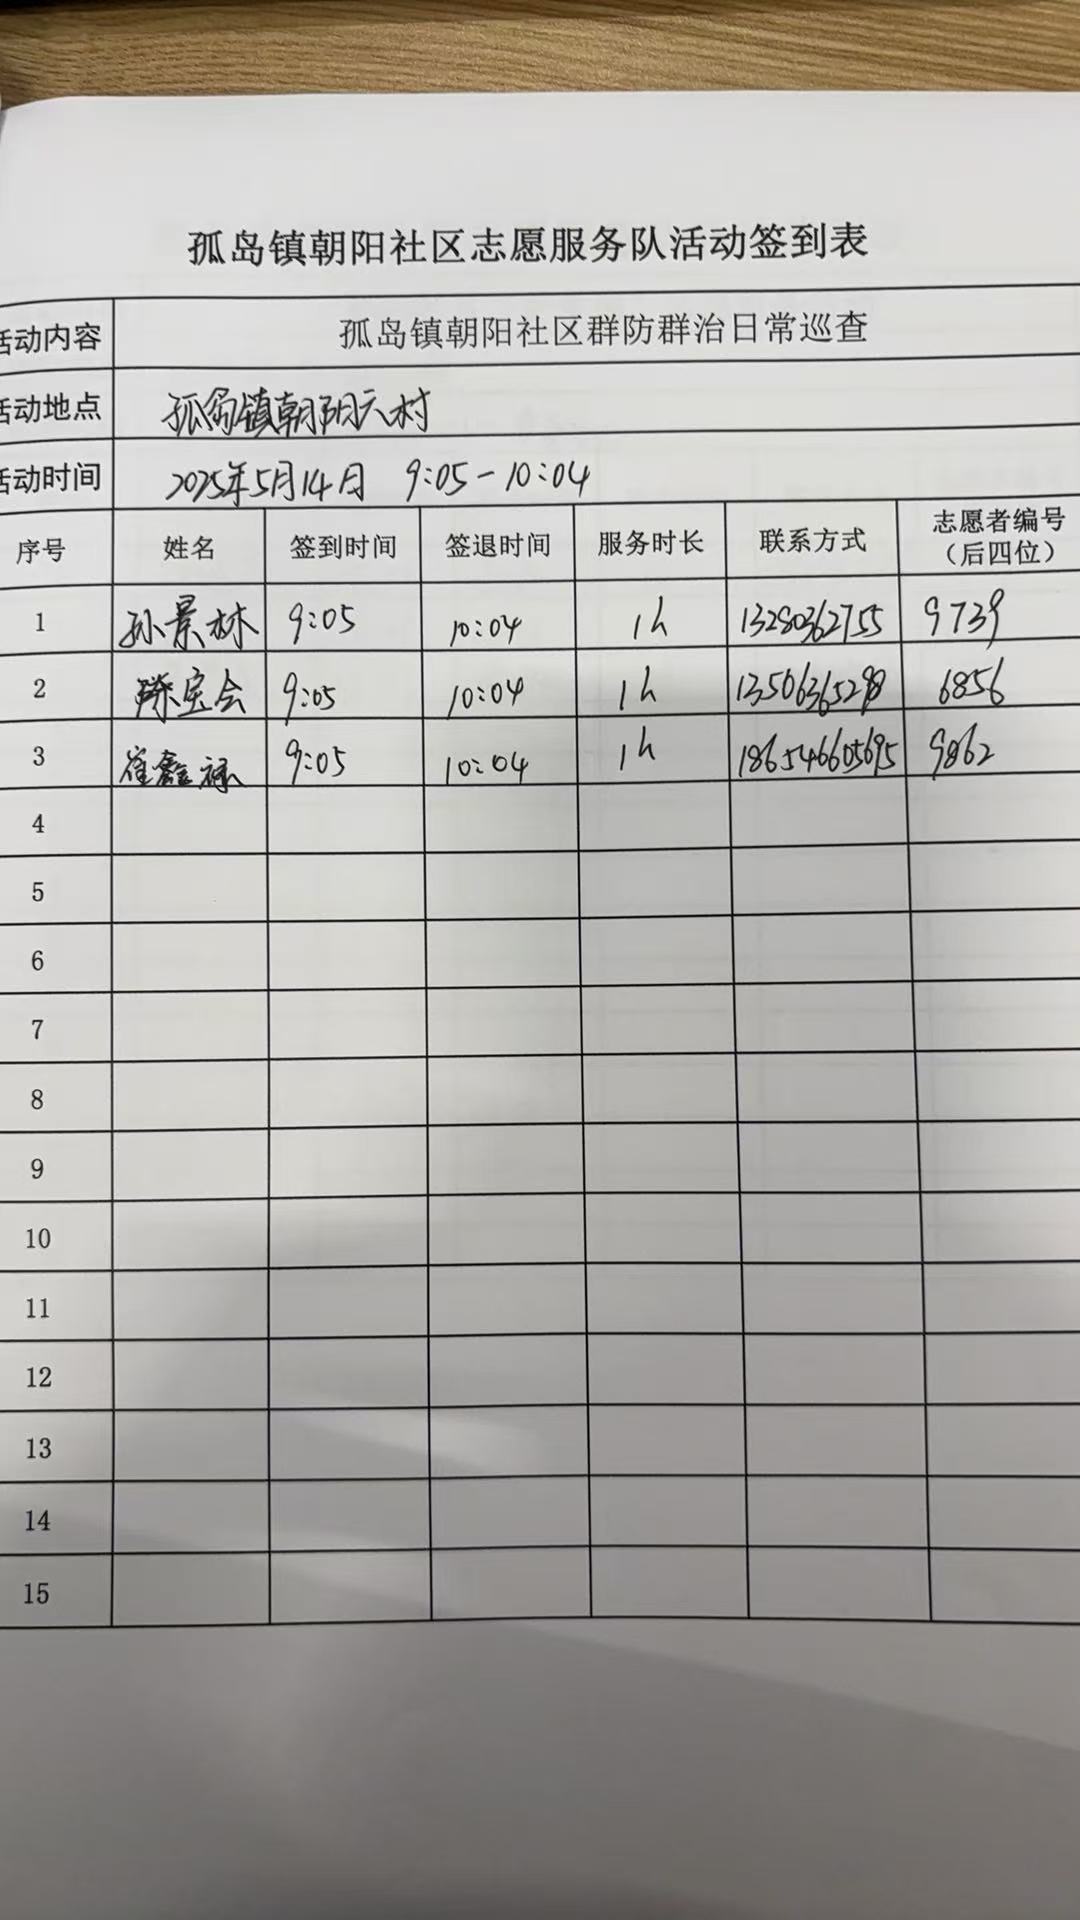 孤岛镇朝阳社区志愿服务队活动签到表
活动内容 孤岛镇朝阳社区群防群治日常巡查
活动地点 孤岛镇朝阳六村
活动时间 2025年5月14日 9:05-10:04
序号 姓名 签到时间 签退时间 服务时长 联系方式 志愿者编号（后四位）
1 孙景林 9:05 10:04 1h 13280362755 9739
2 宝会 9:05 10:04 1h 13506365298 6856
3 崔鑫禄 9:05 10:04 1h 186546605695 9862
4
5
6
7
8
9
10
11
12
13
14
15